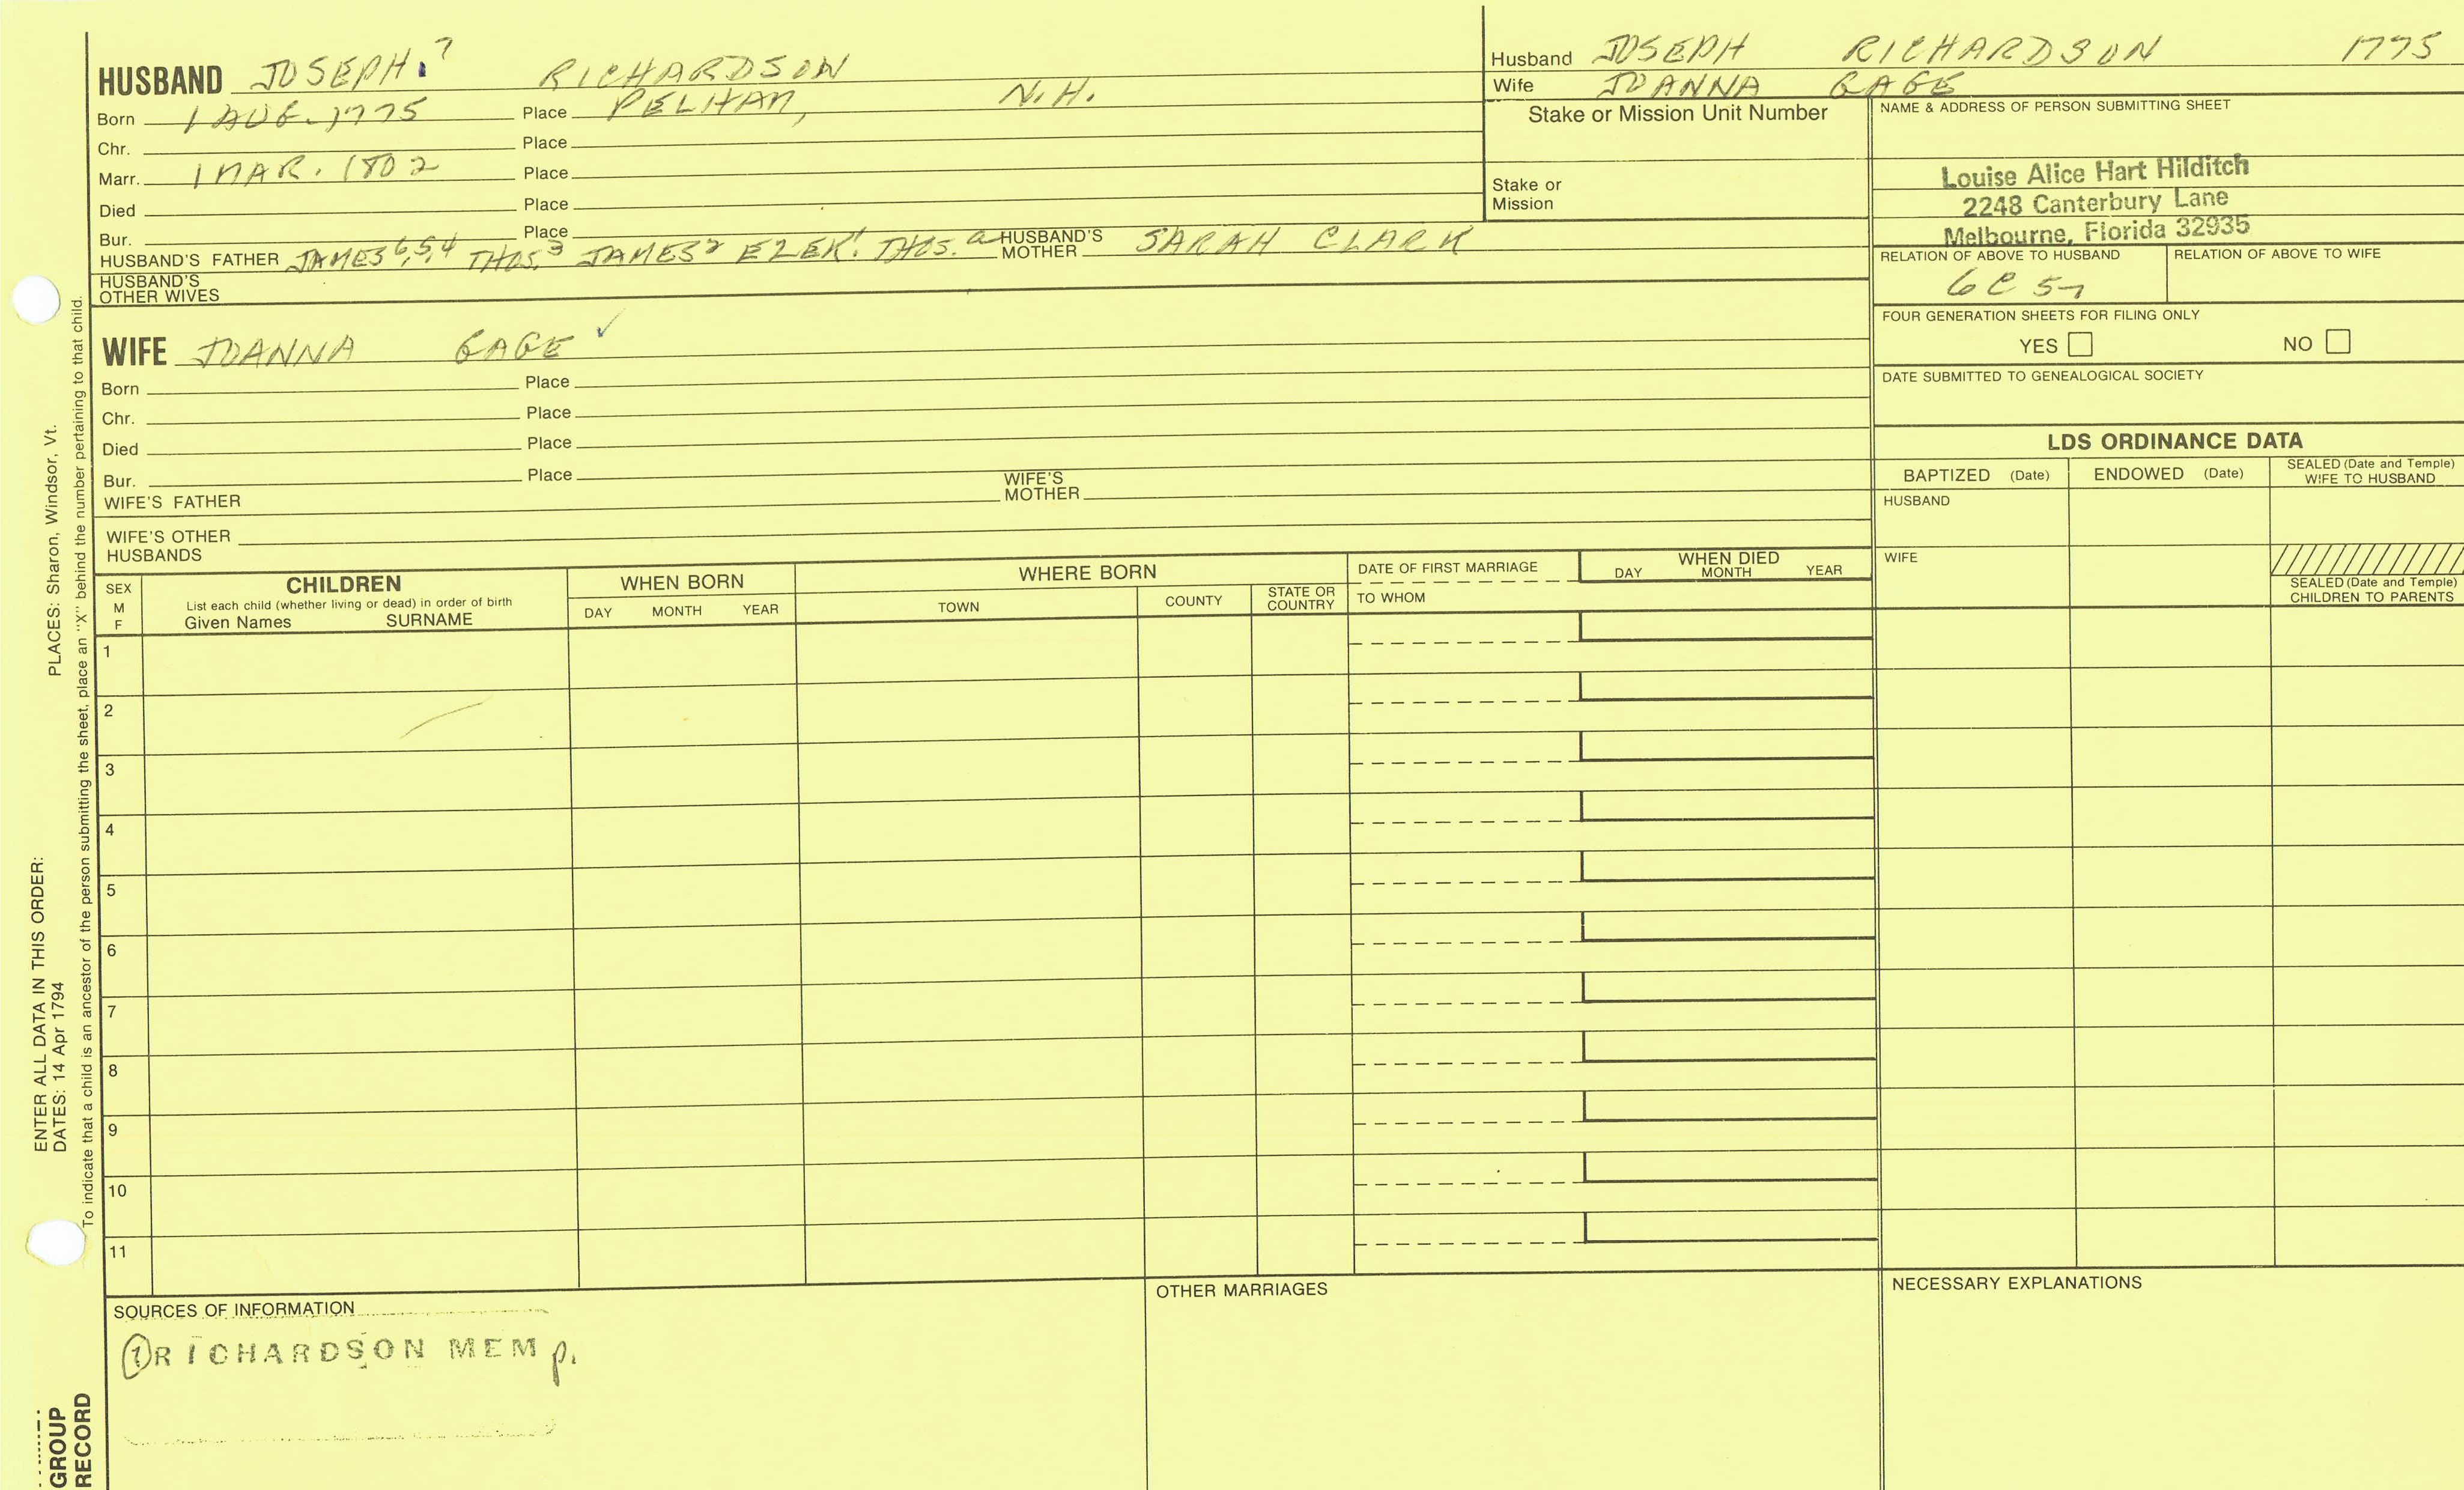 HUSBAND JOSEPH.7 RICHARDSON
Born 1 AUG. 1775 Place PELHAM, N.H.
Chr. Place
Marr. 1 MAR. 1802 Place
Died Place
Bur. Place
HUSBAND'S FATHER JAMES6,5,4 THOS.3 JAMES2 EZEK.1 THOS.a HUSBAND'S MOTHER SARAH CLARK
HUSBAND'S OTHER WIVES
Husband JOSEPH RICHARDSON 1775
Wife JOANNA GAGE
Stake or Mission Unit Number
Stake or Mission
NAME & ADDRESS OF PERSON SUBMITTING SHEET
Louise Alice Hart Hilditch
2248 Canterbury Lane
Melbourne, Florida 32935
RELATION OF ABOVE TO HUSBAND RELATION OF ABOVE TO WIFE
6C 5
FOUR GENERATION SHEETS FOR FILING ONLY
YES NO
DATE SUBMITTED TO GENEALOGICAL SOCIETY
WIFE JOANNA GAGE ✓
Born Place
Chr. Place
Died Place
Bur. Place
WIFE'S FATHER WIFE'S MOTHER
WIFE'S OTHER HUSBANDS
LDS ORDINANCE DATA
BAPTIZED (Date) ENDOWED (Date) SEALED (Date and Temple) WIFE TO HUSBAND
HUSBAND
WIFE
SEALED (Date and Temple) CHILDREN TO PARENTS
SEX M F
CHILDREN
List each child (whether living or dead) in order of birth
Given Names SURNAME
WHEN BORN
DAY MONTH YEAR
WHERE BORN
TOWN COUNTY STATE OR COUNTRY
DATE OF FIRST MARRIAGE
TO WHOM
WHEN DIED
DAY MONTH YEAR
1
2
3
4
5
6
7
8
9
10
11
SOURCES OF INFORMATION
① RICHARDSON MEM p.
OTHER MARRIAGES
NECESSARY EXPLANATIONS
ENTER ALL DATA IN THIS ORDER:
DATES: 14 Apr 1794 PLACES: Sharon, Windsor, Vt.
To indicate that a child is an ancestor of the person submitting the sheet, place an "X" behind the number pertaining to that child.
GROUP
RECORD